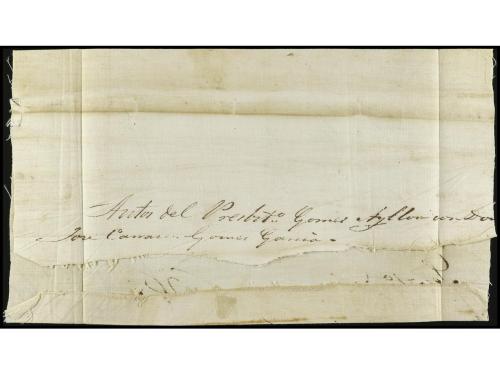 Autos del Presbit.o Gomes Ayllon con Don
Jose Gomes Garcia.